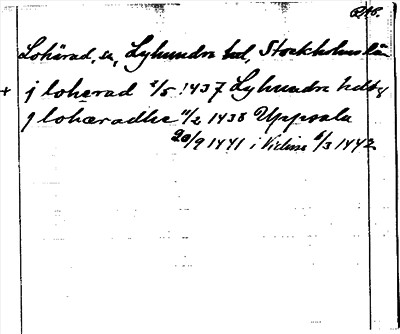 Lohärad, sn, Lyhundra hd, Stockholms län
+ j loherad 2/5 1437 Lyhundra hdbg
j lohæradhe 11/2 1438 Uppsala
20/9 1441 i Vidisse 6/3 1442